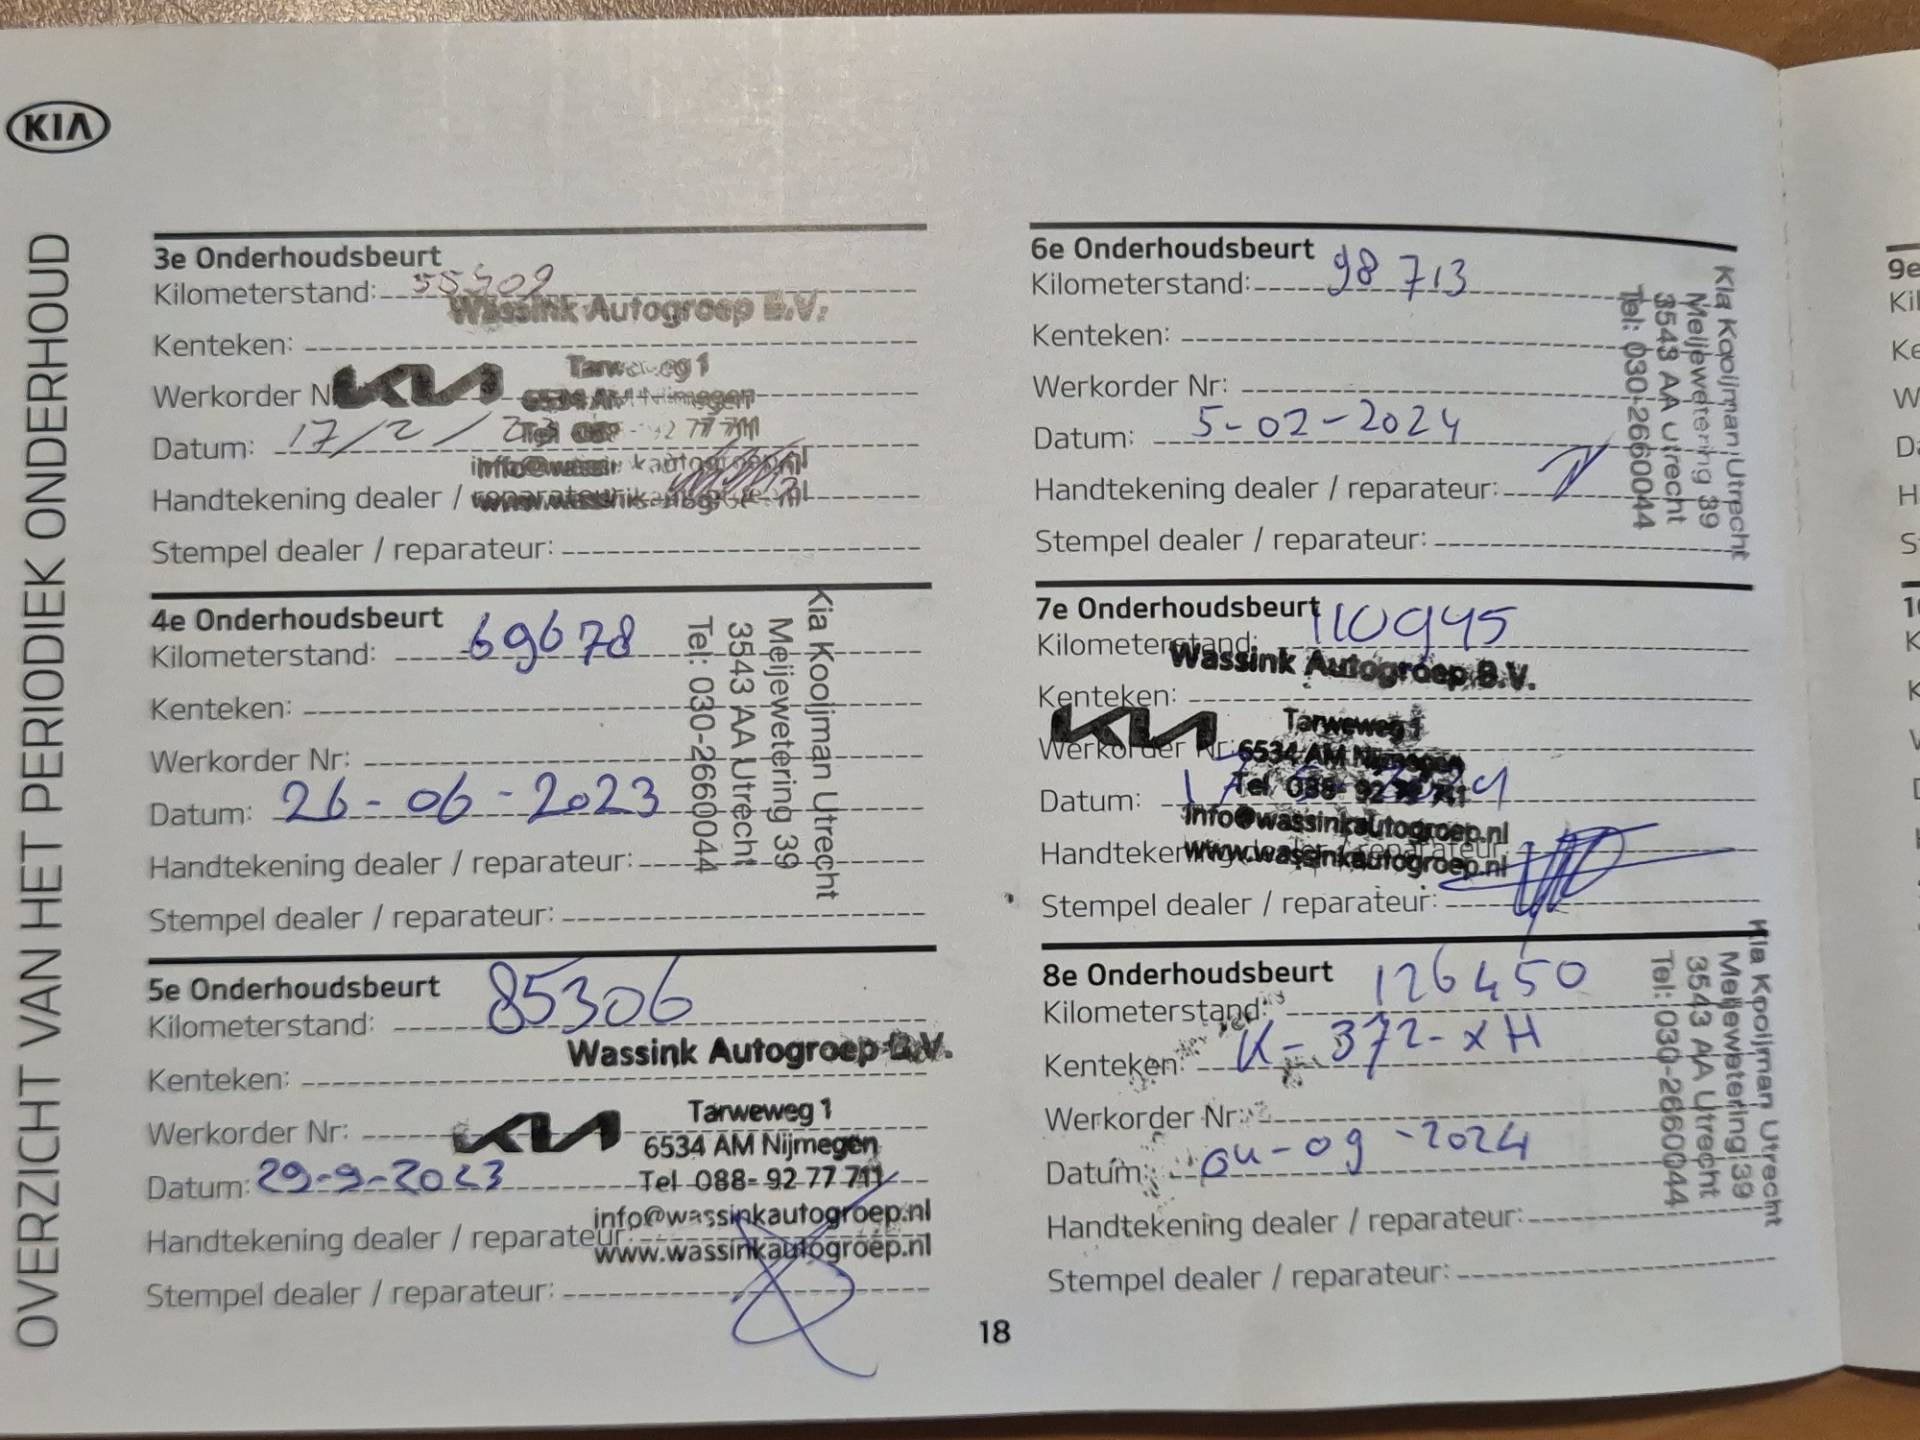 KIA
OVERZICHT VAN HET PERIODIEK ONDERHOUD
3e Onderhoudsbeurt
Kilometerstand: 55409
Wassink Autogroep B.V.
Kenteken:
Tarweweg 1
Werkorder N
KIA 6534 AM Nijmegen
Datum: 17/2/23
Tel 088- 92 77 711
info@wassinkautogroep.nl
Handtekening dealer / reparateur:
www.wassinkautogroep.nl
Stempel dealer / reparateur:
4e Onderhoudsbeurt
Kilometerstand: 69678
Kenteken:
Werkorder Nr:
Datum: 26-06-2023
Handtekening dealer / reparateur:
Stempel dealer / reparateur:
Kia Kooijman Utrecht
Meijewetering 39
3543 AA Utrecht
Tel: 030-2660044
5e Onderhoudsbeurt
Kilometerstand: 85306
Wassink Autogroep B.V.
Kenteken:
Tarweweg 1
Werkorder Nr:
KIA 6534 AM Nijmegen
Datum: 29-9-2023
Tel 088- 92 77 711
info@wassinkautogroep.nl
Handtekening dealer / reparateur:
www.wassinkautogroep.nl
Stempel dealer / reparateur:
6e Onderhoudsbeurt
Kilometerstand: 98713
Kenteken:
Werkorder Nr:
Datum: 5-02-2024
Handtekening dealer / reparateur:
Stempel dealer / reparateur:
Kia Kooijman Utrecht
Meijewetering 39
3543 AA Utrecht
Tel: 030-2660044
7e Onderhoudsbeurt
Kilometerstand: 110945
Wassink Autogroep B.V.
Kenteken:
Tarweweg 1
KIA
Werkorder Nr:
6534 AM Nijmegen
Tel 088- 92 77 711
Datum:
info@wassinkautogroep.nl
Handtekening dealer / reparateur:
www.wassinkautogroep.nl
Stempel dealer / reparateur:
8e Onderhoudsbeurt
Kilometerstand: 126450
Kenteken: K-372-XH
Werkorder Nr:
Datum: 04-09-2024
Handtekening dealer / reparateur:
Stempel dealer / reparateur:
Kia Kooijman Utrecht
Meijewetering 39
3543 AA Utrecht
Tel: 030-2660044
18
9e